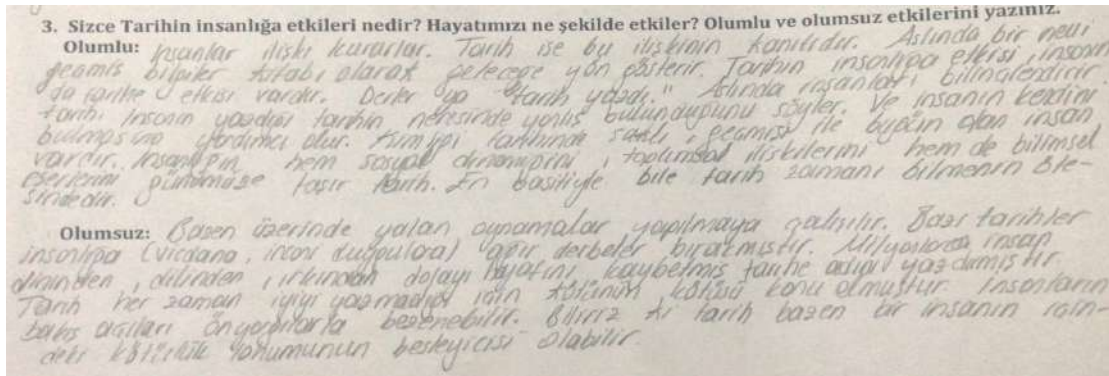 3. Sizce Tarihin insanlığa etkileri nedir? Hayatımızı ne şekilde etkiler? Olumlu ve olumsuz etkilerini yazınız.
Olumlu: İnsanlar ilişki kurarlar. Tarih ise bu ilişkinin kanıtıdır. Aslında bir nevi
geçmiş bilgiler kitabı olarak geleceğe yön gösterir. Tarihin insanlığa etkisi, insanın
da tarihe etkisi vardır. Derler ya "tarih yazdı." Aslında insanları bilinçlendirir
tarih. İnsanın yazdığı tarihin neresinde yanlış bulunduğunu söyler. Ve insanın kendini
bulmasına yardımcı olur. Kimliği tarihinde saklı, geçmişi ile bugün olan insan
vardır. İnsanlığın hem sosyal dinamiğini, toplumsal ilişkilerini hem de bilimsel
eserlerini günümüze taşır tarih. En basitiyle bile tarih zamanı bilmenin öte-
sindedir.
Olumsuz: Bazen üzerinde yalan oynamalar yapılmaya çalışılır. Bazı tarihler
insanlığa (vicdana, insani duygulara) ağır darbeler bırakmıştır. Milyonlarca insan
dininden, dilinden, ırkından dolayı hayatını kaybetmiş tarihe adını yazdırmıştır.
Tarih her zaman iyiyi yazmadığı için kötünün kötüsü konu olmuştur. İnsanların
bakış açıları önyargılarla bezenebilir. Biliriz ki tarih bazen bir insanın için-
deki kötülük tohumunun besleyicisi olabilir.